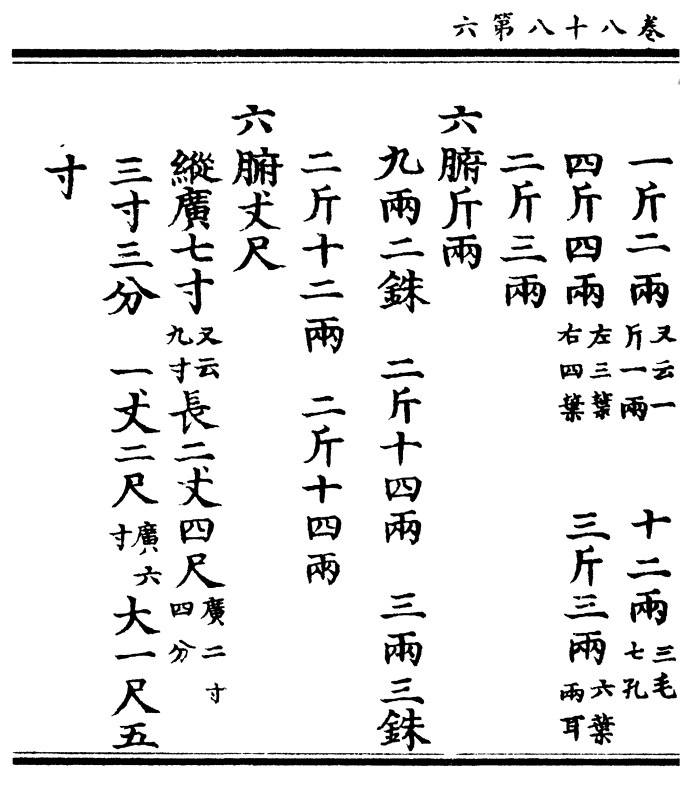 卷八十八第六
一斤二兩又云一斤一兩　十二兩三毛七孔
四斤四兩左三葉右四葉　三斤三兩六葉兩耳
二斤三兩
六腑斤兩
九兩二銖　二斤十四兩　三兩三銖
二斤十二兩　二斤十四兩
六腑丈尺
縱廣七寸又云九寸長二丈四尺廣二寸四分
三寸三分　一丈二尺廣六寸大一尺五
寸